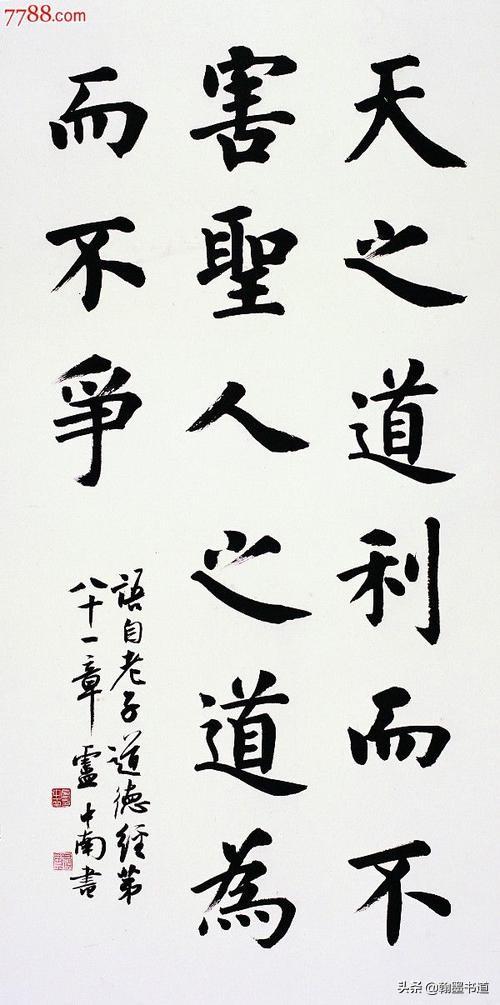 7788.com
天之道利而不
害聖人之道為
而不爭
語自老子道德經第
八十一章 盧中南書
头条@翰墨书道